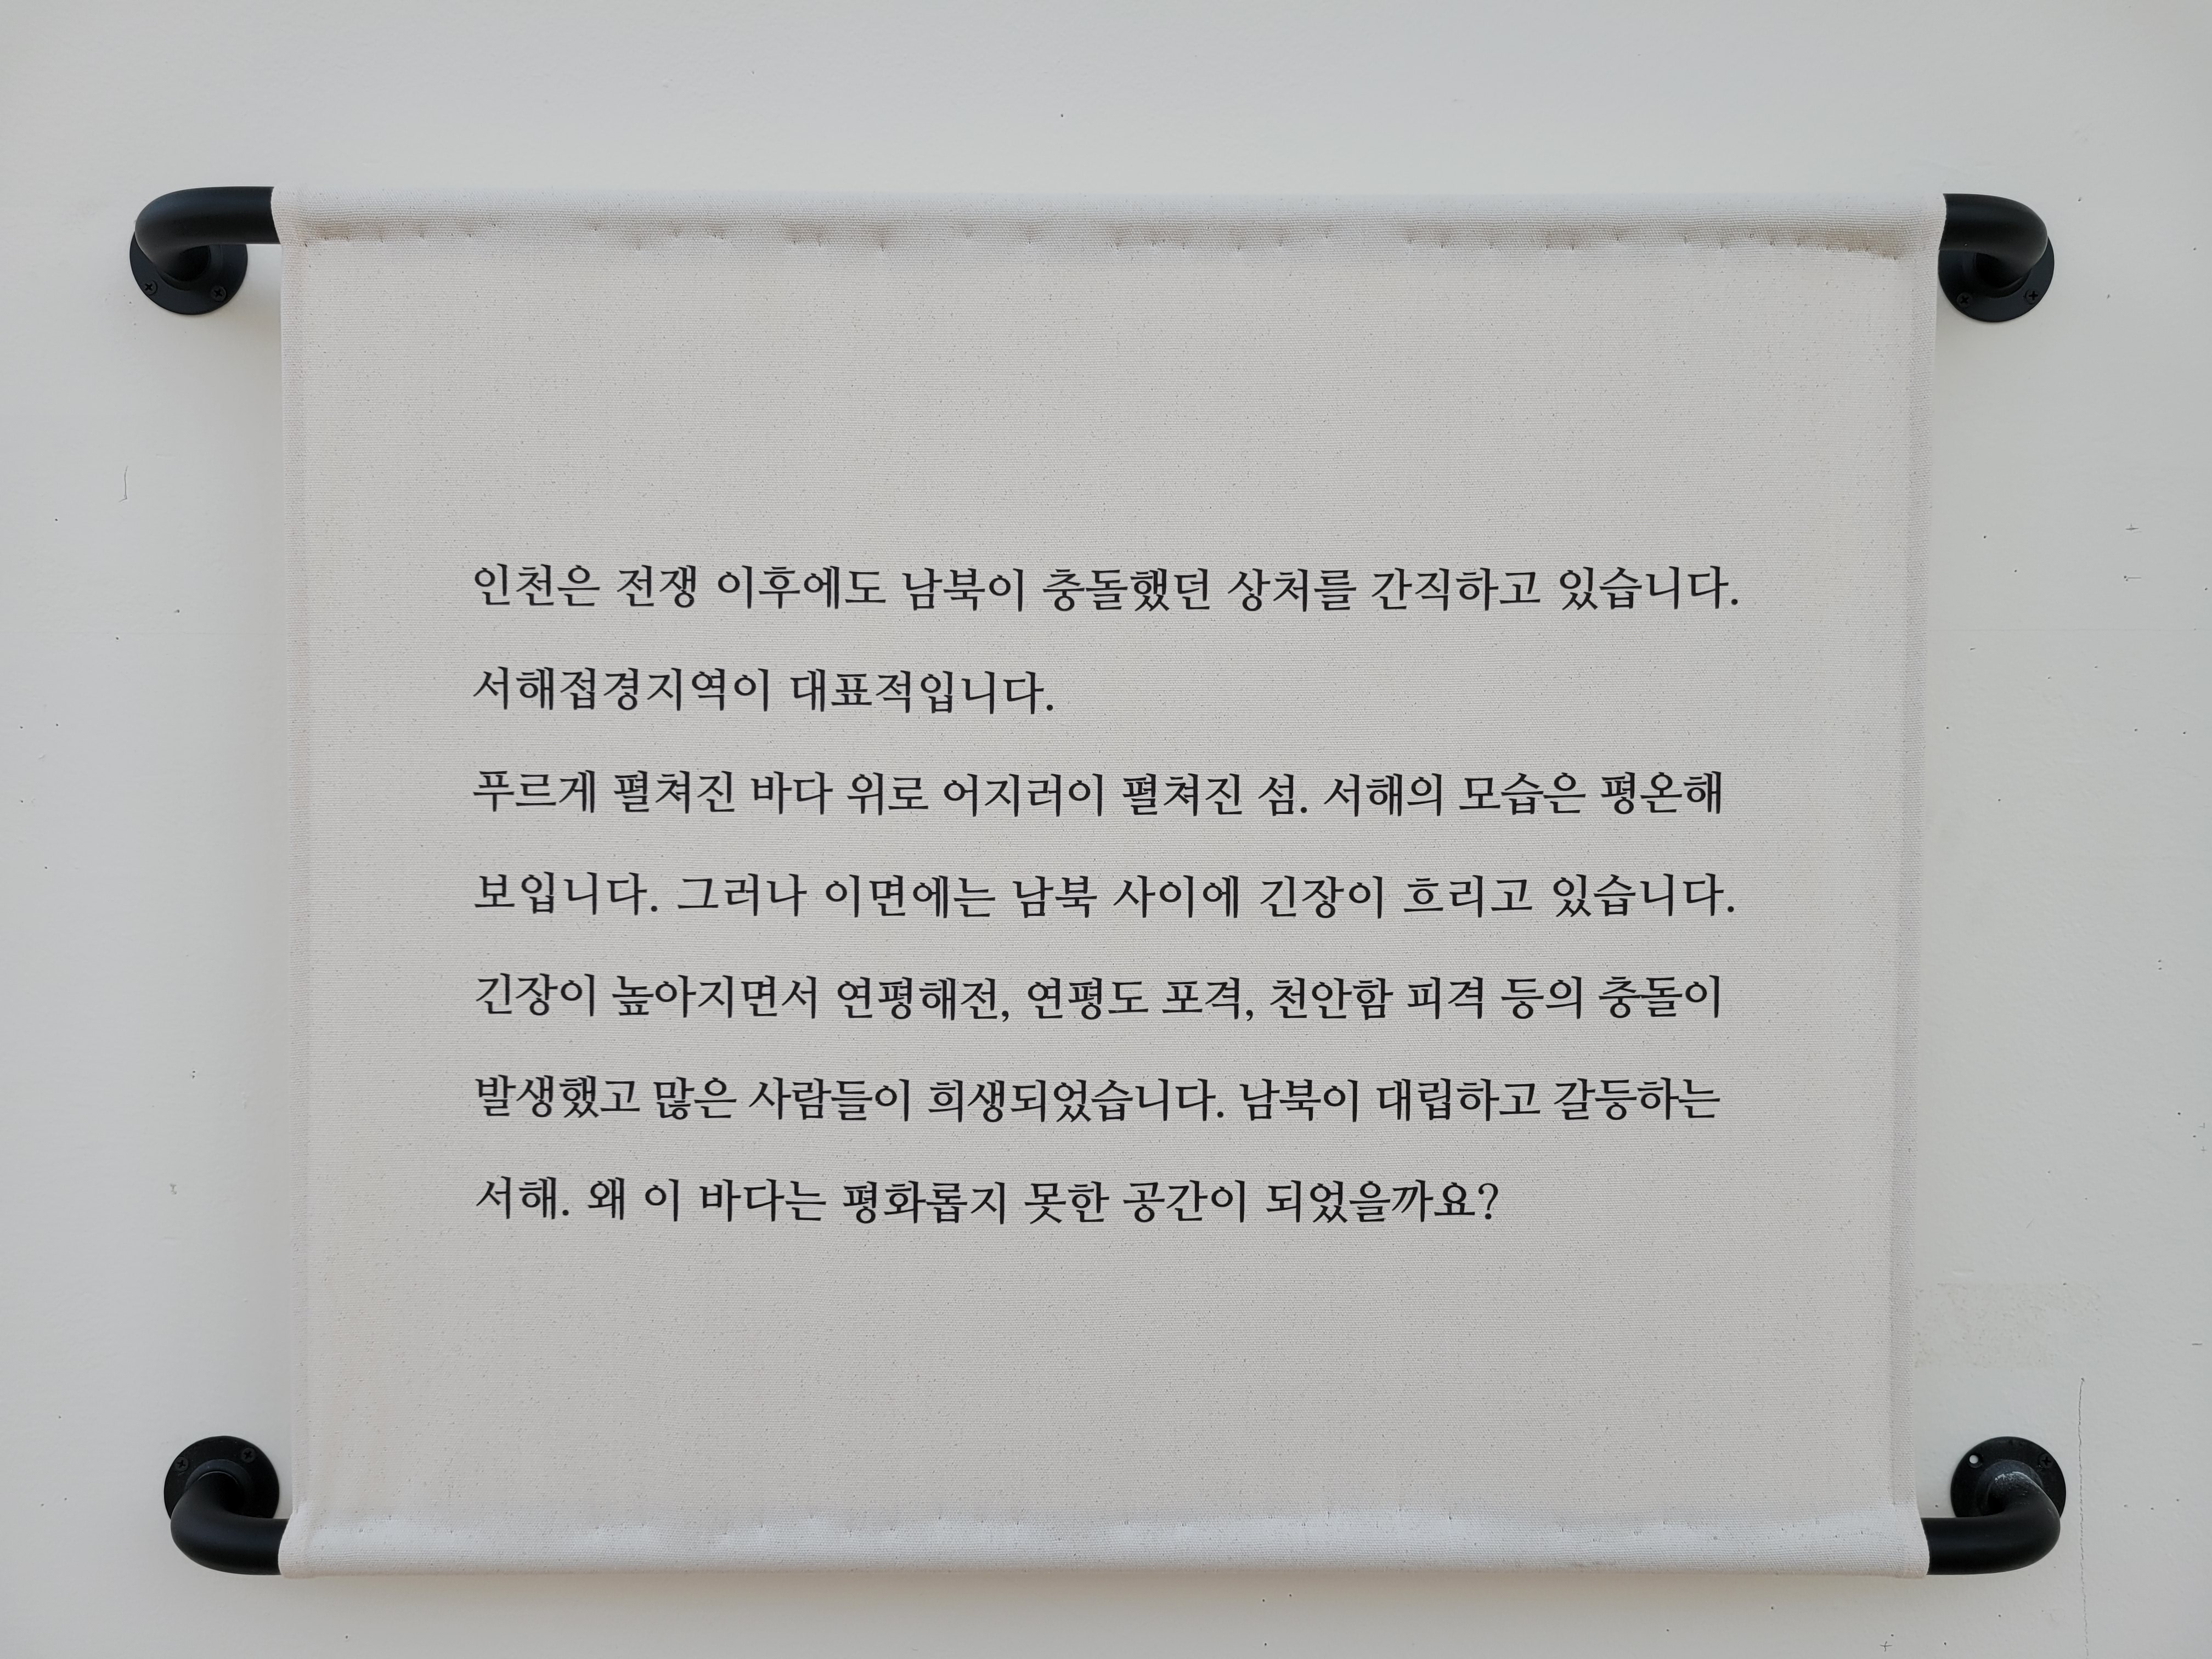 인천은 전쟁 이후에도 남북이 충돌했던 상처를 간직하고 있습니다.
서해접경지역이 대표적입니다.
푸르게 펼쳐진 바다 위로 어지러이 펼쳐진 섬. 서해의 모습은 평온해
보입니다. 그러나 이면에는 남북 사이에 긴장이 흐리고 있습니다.
긴장이 높아지면서 연평해전, 연평도 포격, 천안함 피격 등의 충돌이
발생했고 많은 사람들이 희생되었습니다. 남북이 대립하고 갈등하는
서해. 왜 이 바다는 평화롭지 못한 공간이 되었을까요?